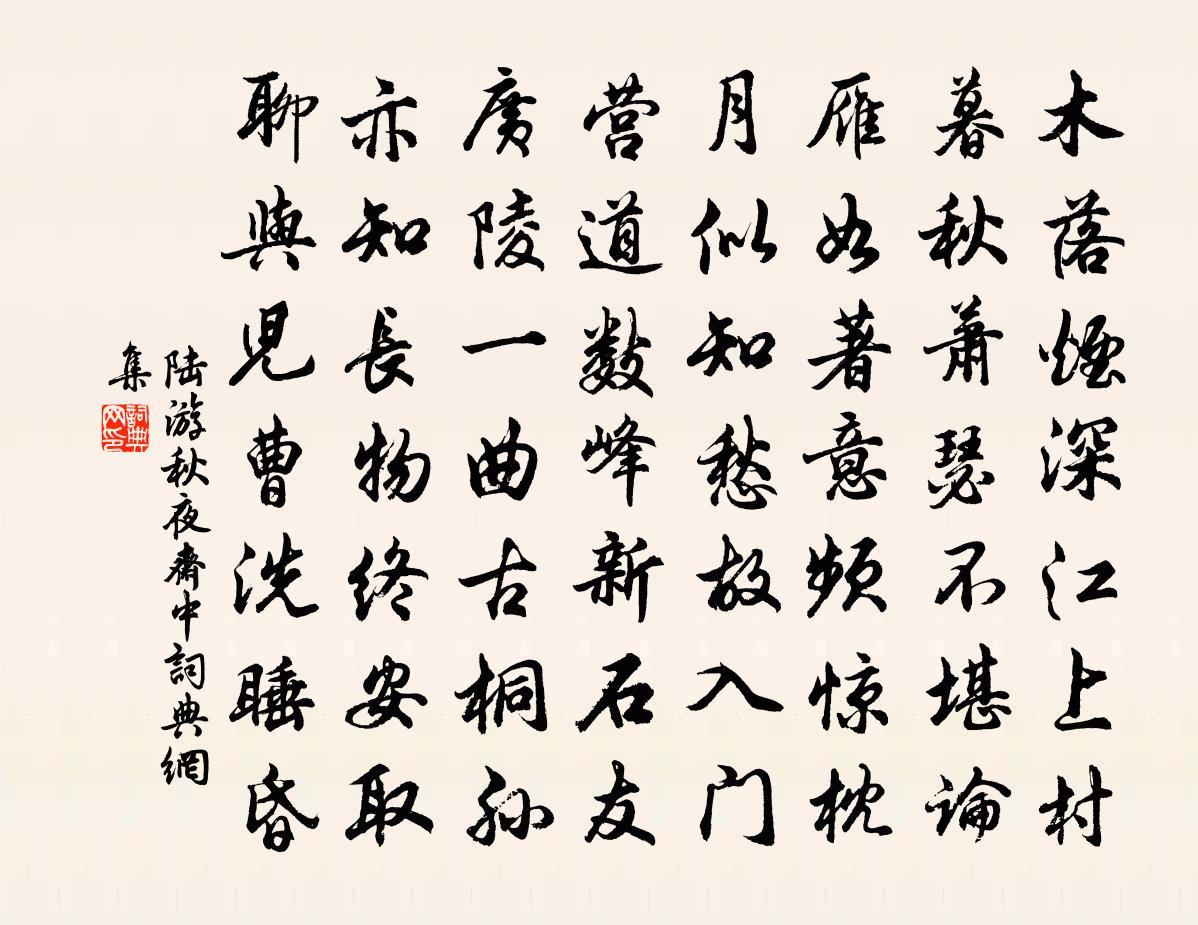 木落煙深江上村
暮秋蕭瑟不堪論
雁如著意頻惊枕
月似知愁故入门
营道數峰新石友
廣陵一曲古桐孙
亦知長物终安取
聊與兒曹洗睡昏
陆游秋夜齋中詞典網
集
詞典
网印